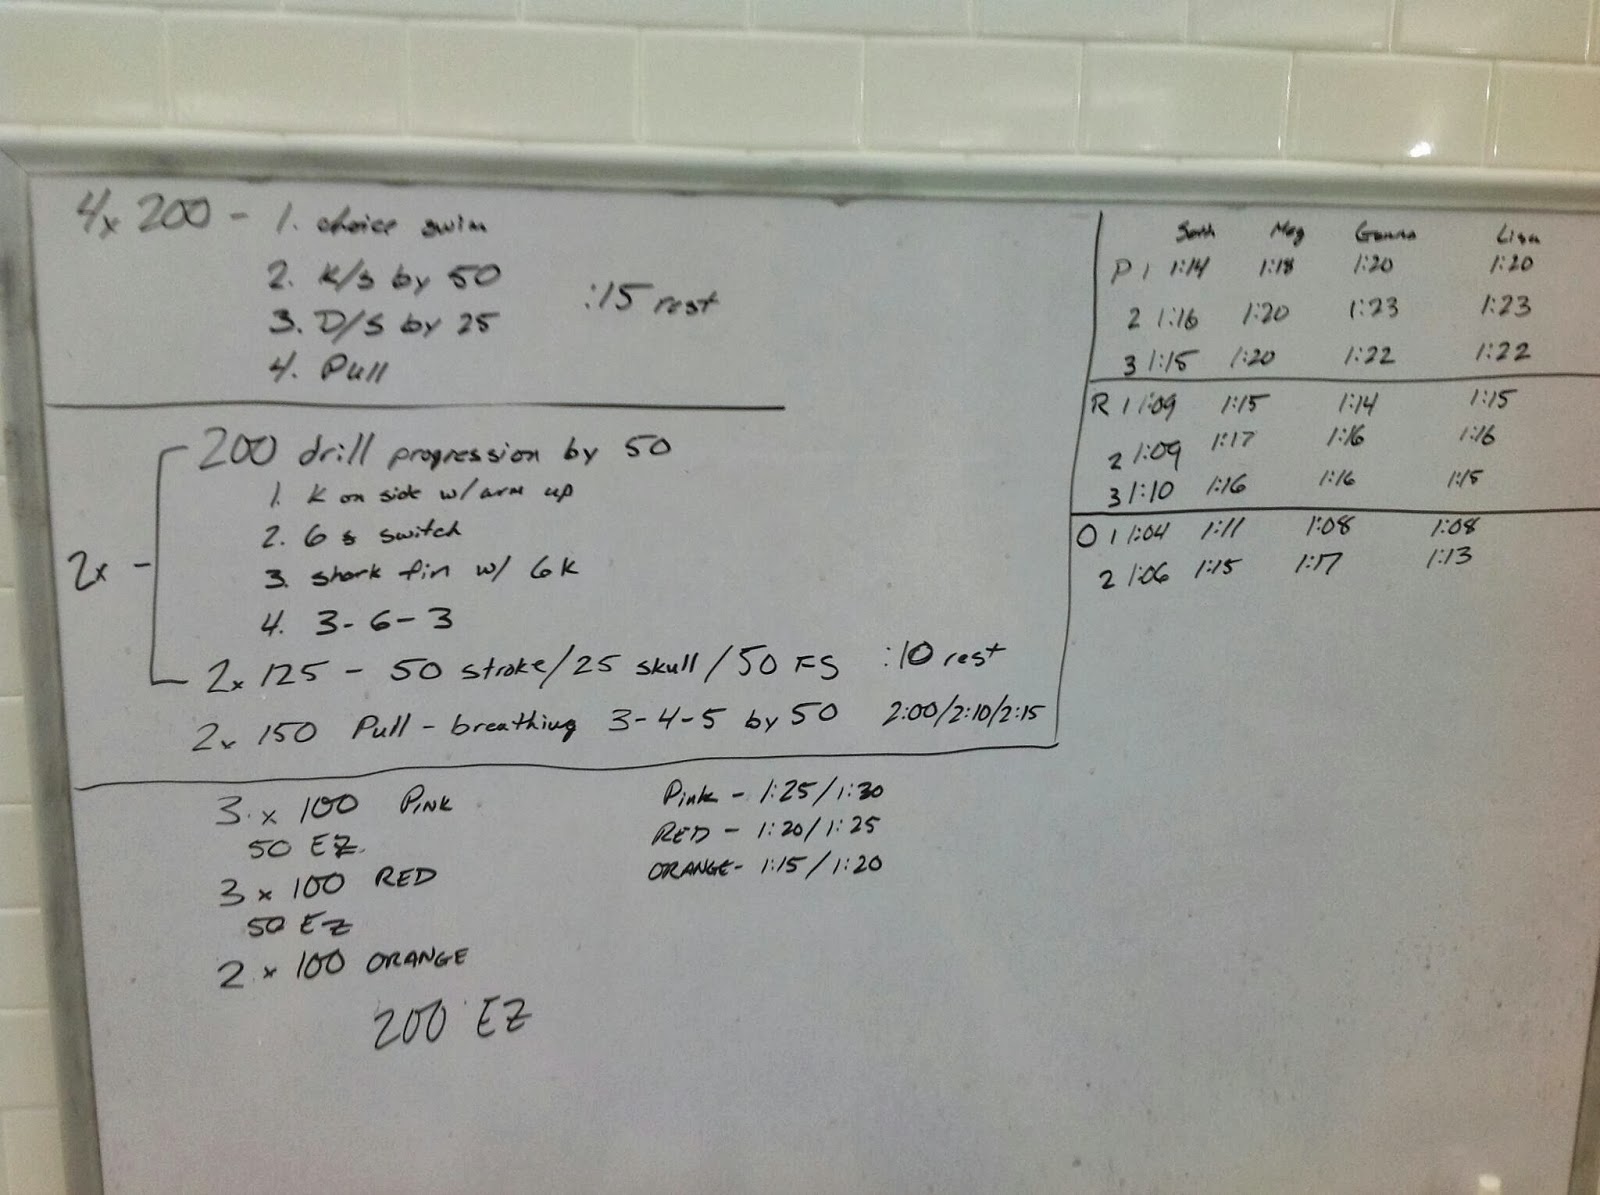 4x 200 - 1. choice swim
2. K/s by 50
3. D/S by 25
4. Pull
:15 rest
2x -
200 drill progression by 50
1. K on side w/ arm up
2. 6 s switch
3. shark fin w/ 6K
4. 3-6-3
2x 125 - 50 stroke/25 skull/50 FS :10 rest
2x 150 Pull - breathing 3-4-5 by 50 2:00/2:10/2:15
3 x 100 PINK
50 EZ
3 x 100 RED
50 EZ
2 x 100 ORANGE
200 EZ
Pink - 1:25/1:30
RED - 1:20/1:25
ORANGE- 1:15/1:20
Meg Lisa
P 1 1:14 1:18 1:20 1:20
2 1:16 1:20 1:23 1:23
3 1:15 1:20 1:22 1:22
R 1 1:09 1:15 1:14 1:15
2 1:09 1:17 1:16 1:16
3 1:10 1:16 1:16 1:15
O 1 1:04 1:11 1:08 1:08
2 1:06 1:15 1:17 1:13